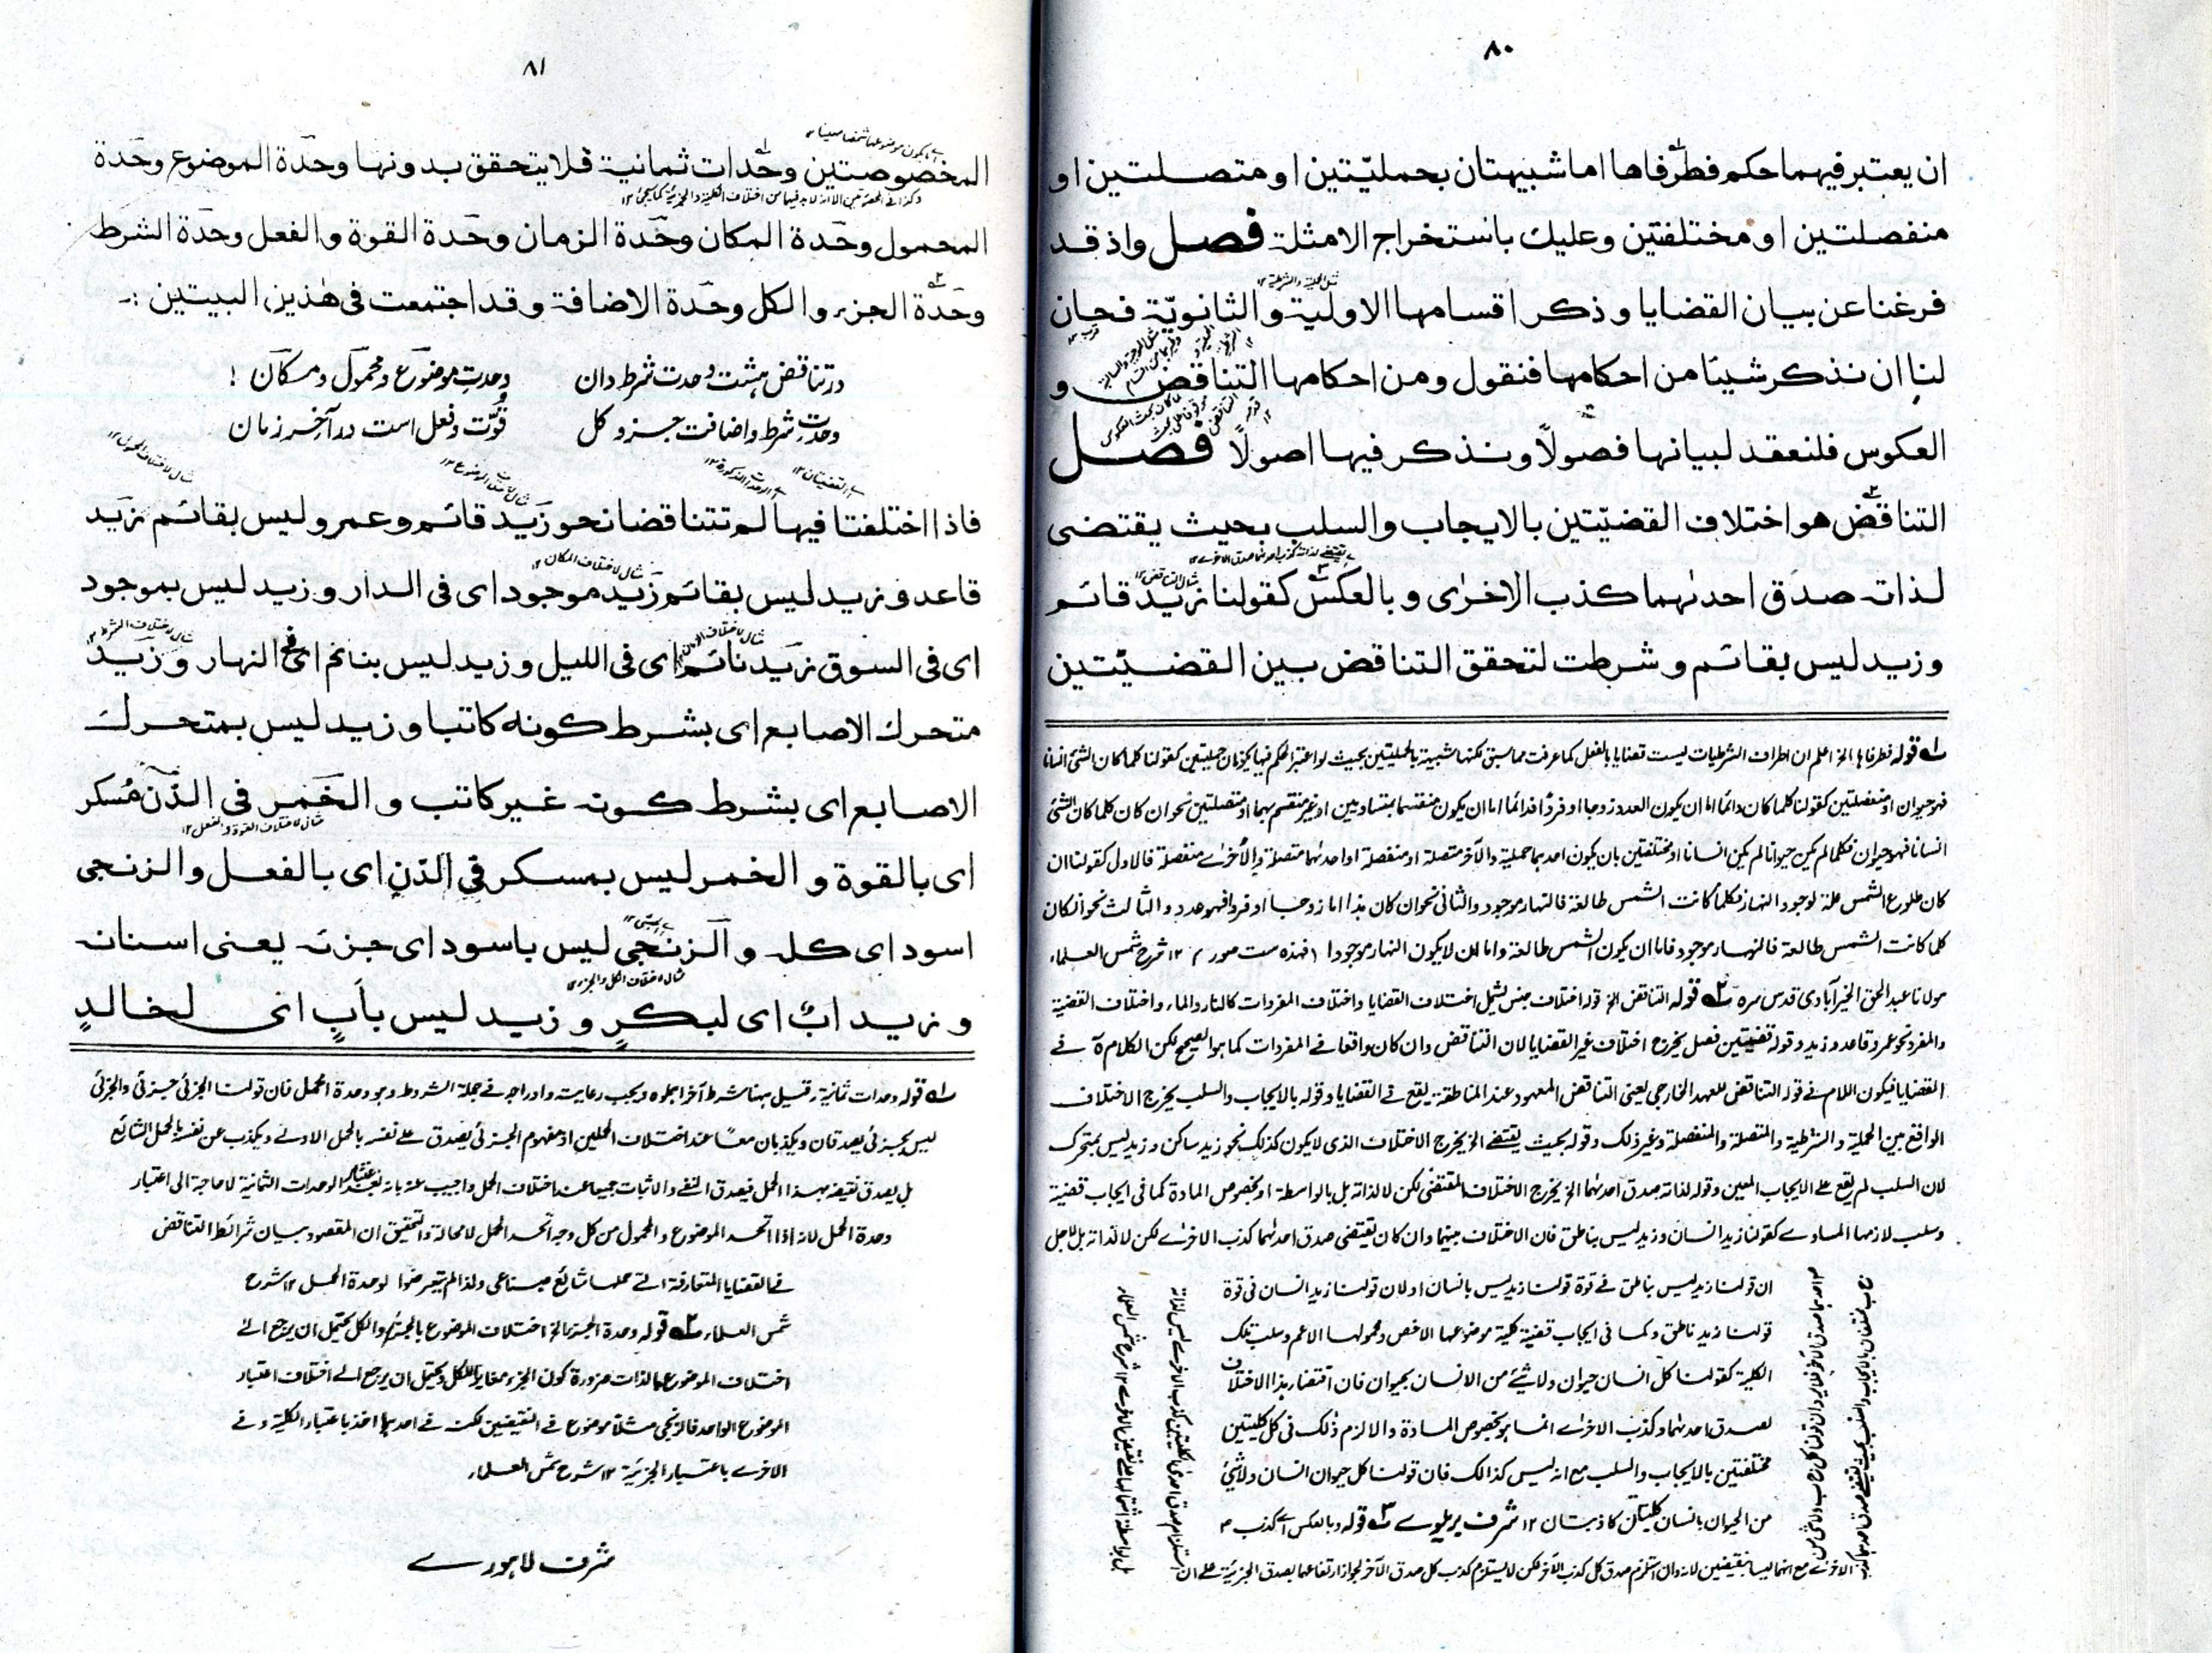 ٨٠
ان يعتبر فيهما حكم فطرفاها اما شبيهتان بحمليّتين او متصلتين او
منفصلتين او مختلفتين وعليك باستخراج الامثلة فصل واذ قد
فرغنا عن بيان القضايا وذكر اقسامها الاولية والثانويّة فحان
لنا ان نذكر شيئا من احكامها فنقول ومن احكامها التناقض و
العكوس فلنعقد لبيانها فصولًا ونذكر فيها اصولًا فصل
التناقض هو اختلاف القضيّتين بالايجاب والسلب بحيث يقتضى
لذاته صدق احدٰهما كذب الاخرٰى وبالعكس كقولنا زيد قائم
وزيد ليس بقائم وشرطت لتحقق التناقض بين القضيّتين
لـه قوله فطرفاها الخ اعلم ان اطراف الشرطيات ليست قضايا بالفعل كما عرفت مما سبق لكنها شبيهة بالحمليتين بحيث لو اعتبر الحكم فيها يكونان حمليتين كقولنا كلما كان الشئ انسانا
فهو حيوان او منفصلتين كقولنا كلما كان دائما اما ان يكون العدد زوجا او فردًا فدائما اما ان يكون منقسما بمتساويين او غير منقسم بهما او متصلتين نحو ان كان كلما كان الشئ
انسانا فهو حيوان فكلما لم يكن حيوانا لم يكن انسانا او مختلفتين بان يكون احدهما حملية والآخر متصلة او منفصلة او احدٰهما متصلة والأخرٰے منفصلة فالاول كقولنا ان
كان طلوع الشمس علة لوجود النهار فكلما كانت الشمس طالعة فالنهار موجود والثانى نحو ان كان هذا اما زوجا او فردا فهو عدد والثالث نحو ان كان
كلما كانت الشمس طالعة فالنهار موجود فاما ان يكون الشمس طالعة واما ان لا يكون النهار موجودا ١٢ شرح شمس العلماء
مولانا عبد الحق الخيرآبادى قدس سره ٢ـه قوله التناقض الخ قوله اختلاف جنس يشمل اختلاف القضايا واختلاف المفردات كالنار والماء واختلاف القضية
والمفرد نحو عمرو قاعد وزيد وقوله قضيتين فصل يخرج اختلاف غير القضايا لان التناقض وان كان واقعا فے المفردات كما هو الصحيح لكن الكلام فے
القضايا فيكون اللام فے قوله التناقض للعهد الخارجى يعنى التناقض المعهود عند المناطقة يقع فے القضايا وقوله بالايجاب والسلب يخرج الاختلاف
الواقع بين الحملية والشرطية والمتصلة والمنفصلة وغير ذلك وقوله بحيث يقتضے الخ يخرج الاختلاف الذى لا يكون كذلك نحو زيد ساكن وزيد ليس بمتحرك
لان السلب لم يقع علے الايجاب المعين وقوله لذاته صدق احدٰهما الخ يخرج الاختلاف المقتضى لكن لا لذاته بل بالواسطة او بخصوص المادة كما فى ايجاب قضية
وسلب لازمها المساوے كقولنا زيد انسان وزيد ليس بناطق فان الاختلاف بينهما وان كان يقتضى صدق احدٰهما كذب الاخرٰے لكن لا لذاته بل لاجل
ان قولنا زيد ليس بناطق فے قوة قولنا زيد ليس بانسان او لان قولنا زيد انسان فى قوة
قولنا زيد ناطق وكما فى ايجاب قضية كلية موضوعها الاخص ومحمولها الاعم وسلب تلك
الكلية كقولنا كل انسان حيوان ولا شئے من الانسان بحيوان فان اقتضاء هذا الاختلاف
لصدق احدٰهما وكذب الاخرٰے انما هو بخصوص المادة والا لزم ذلك فى كل كليتين
مختلفتين بالايجاب والسلب مع انه ليس كذالك فان قولنا كل حيوان انسان ولا شئ
من الحيوان بانسان كليتان كاذبتان ١٢ شرف بريلوے ٣ـه قوله وبالعكس اے كذب
الاخرٰے مع انهما ليسا بنقيضين لانه وان استلزم صدق كل كذب الآخر لكن لا يستلزم كذب كل صدق الآخر لجواز ارتفاعهما بصدق الجزئية علے ان
٨١
المخصوصتين وحدات ثمانية فلا يتحقق بدونها وحدة الموضوع وحدة
المحمول وحدة المكان وحدة الزمان وحدة القوة والفعل وحدة الشرط
وحدة الجزء والكل وحدة الاضافة وقد اجتمعت فى هٰذين البيتين :-
در تناقض ہشت وحدت شرط دان وحدتِ موضوع و محمول و مکان !
وحدتِ شرط و اضافت جزو کل قوّت و فعل است در آخر زمان
فاذا اختلفتا فيها لم تتناقضا نحو زيد قائم وعمرو ليس بقائم زيد
قاعد و زيد ليس بقائم زيد موجود اى فى الدار وزيد ليس بموجود
اى فى السوق زيد نائم اى فى الليل وزيد ليس بنائم اى فى النهار وزيد
متحرك الاصابع اى بشرط كونه كاتبا وزيد ليس بمتحرك
الاصابع اى بشرط كونه غير كاتب والخمر فى الدّن مُسكر
اى بالقوة والخمر ليس بمسكر فى الدّن اى بالفعل والزنجى
اسود اى كله والزنجى ليس باسود اى جزئه يعنى اسنانه
وزيد ابٌ اى لبكرٍ وزيد ليس بأبٍ اى لخالدٍ
لـه قوله وحدات ثمانية قيل ههنا شرط آخر اهملوه ويجب رعايته وادراجه فے جملة الشروط وهو وحدة الحمل فان قولنا الجزئى جزئى والجزئى
ليس بجزئى يصدقان ويكذبان معًا عند اختلاف الحملين اذ مفهوم الجزئى يصدق علے نفسه بالحمل الاولے ويكذب عن نفسه بالحمل الشائع
بل يصدق نقيضه بهذا الحمل فيصدق النفے والاثبات جميعا عند اختلاف الحمل واجيب عنه بانه بعد اعتبار الوحدات الثمانية لا حاجة الى اعتبار
وحدة الحمل لانه اذا اتحد الموضوع والمحمول من كل وجه اتحد الحمل لا محالة والتحقيق ان المقصود بيان شرائط التناقض
فے القضايا المتعارفة التے حملها شائع صناعى ولذا لم يتعرضوا لوحدة الحمل ١٢ شرح
شمس العلماء ٢ـه قوله وحدة الجزء الخ اختلاف الموضوع بالجزء والكل يحتمل ان يرجع الے
اختلاف الموضوع بالذات ضرورة كون الجزء مغايرا للكل ويحتمل ان يرجع الے اختلاف اعتبار
الموضوع الواحد فالزنجى مثلا موضوع فے النقيضين لكن فے احدٰهما اخذ باعتبار الكلية وفے
الاخرے باعتبار الجزئية ١٢ شرح شمس العلماء
شرف لاہورے